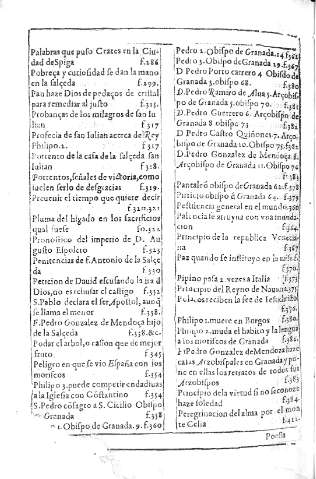 Palabras que puso Crates en la Ciu-
dad de Spiga f.286
Pobreça y curiosidad se dan la mano
en la salceda f.299.
Pan haze Dios de pedaços de cristal
para remediar al justo f.315.
Probanças de los milagros de san Iu
lian f.317
Profecia de san Iulian acerca del Rey
Philipo.2. f.317
de la casa de la salceda. san
Iulian f.318.
señales de victoria, como
suelen serlo de desgracias f.319.
el tiempo que quiere decir
f.320.321
Pluma del higado en los sacrificios
qual fuese fo.322
Pronostico del imperio de D. Au
gusto Espoleto f.325
Penitencias de f. Antonio de la Salçe
da f.330
Peticion de Dauid escusando la ira d
Dios, o rechusar el castigo f.352
S. Pablo declara el ser Apostol, aunq̃
se llamo el menor f.358.
F. Pedro Gonzalez de Mendoça hijo
de la Salçeda f.358.&c.
Podar el arbol, o razon que de mejor
fruto f.345
Peligro en que se vio España con los
moriscos f.354
Philipo 3. puede competir en dadiuas
a la Iglesia con Costantino f.354
S. Pedro cõsagro a S. Cicilio Obispo
Granada f.358
1. Obispo de Granada.9. f.360
Pedro 2. Obispo de Granada.14
Pedro 3. Obispo de Granada 29. f.367
D Pedro Porto carrero 4 Obispo de
Granada 5. obispo 68.
D. Pedro Ramiro de Alua 5. Arçobis
po de Granada 5. obispo 70. f.381
D. Pedro Guerrero 6. Arçobispo de
Granada 8 obispo 73 f.382
D Pedro Castro Quiñones.7. Arço.
bispo de Granada.10. Obispo.75. f.382
D. Pedro Gonzalez de Mendoça 8.
Arçobispo de Granada 11. Obispo
f.383
Pantaleõ obispo de Granada 62. f.378
obispo de Granada 64. f.379
general en el mundo
con vna inunda-
cion f.364.
Principio de la republica Venecia
na f.367
Paz quando se
f.370.
Pipino pasa 2. vezes a Italia f.373
Principio del Reyno de Nauarra f.375
Pola, os reciben la fee de Iesu Christo
f.376.
Philipo 1. muere en Burgos f.380.
Philipo 2. muda el habito y la lengua
a los moriscos de Granada f.382.
F. Pedro Gonzalez de Mendoça haze
casa Arçobispales en Granada y po-
ne en ellas los retratos de todos sus
Arçobispos f.383
Principio de la virtud si no se conoze
haze soledad f.384.
Peregrinacion del alma por el mon
te Celia f.422.
Poesia